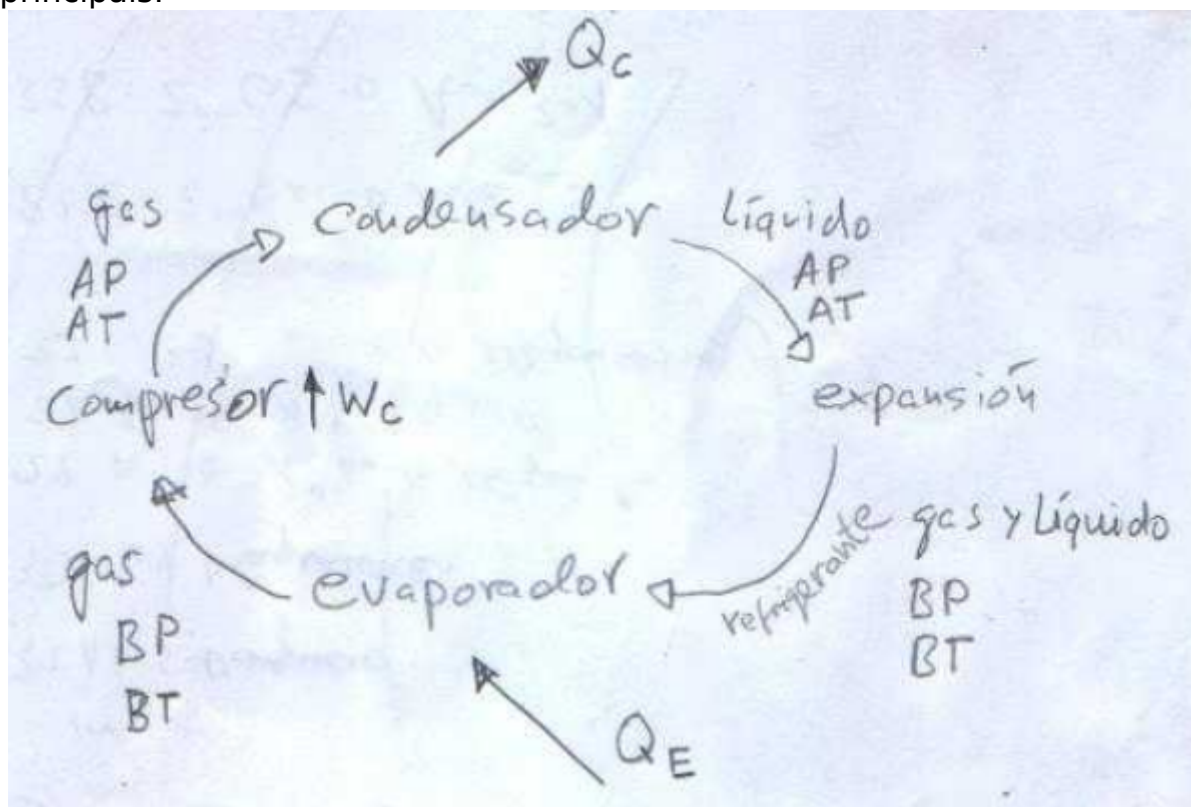 principais:
Qc
gas
AP
AT
condensador
líquido
AP
AT
compresor Wc
expansión
refrigerante
gas y líquido
BP
BT
gas
BP
BT
evaporador
QE